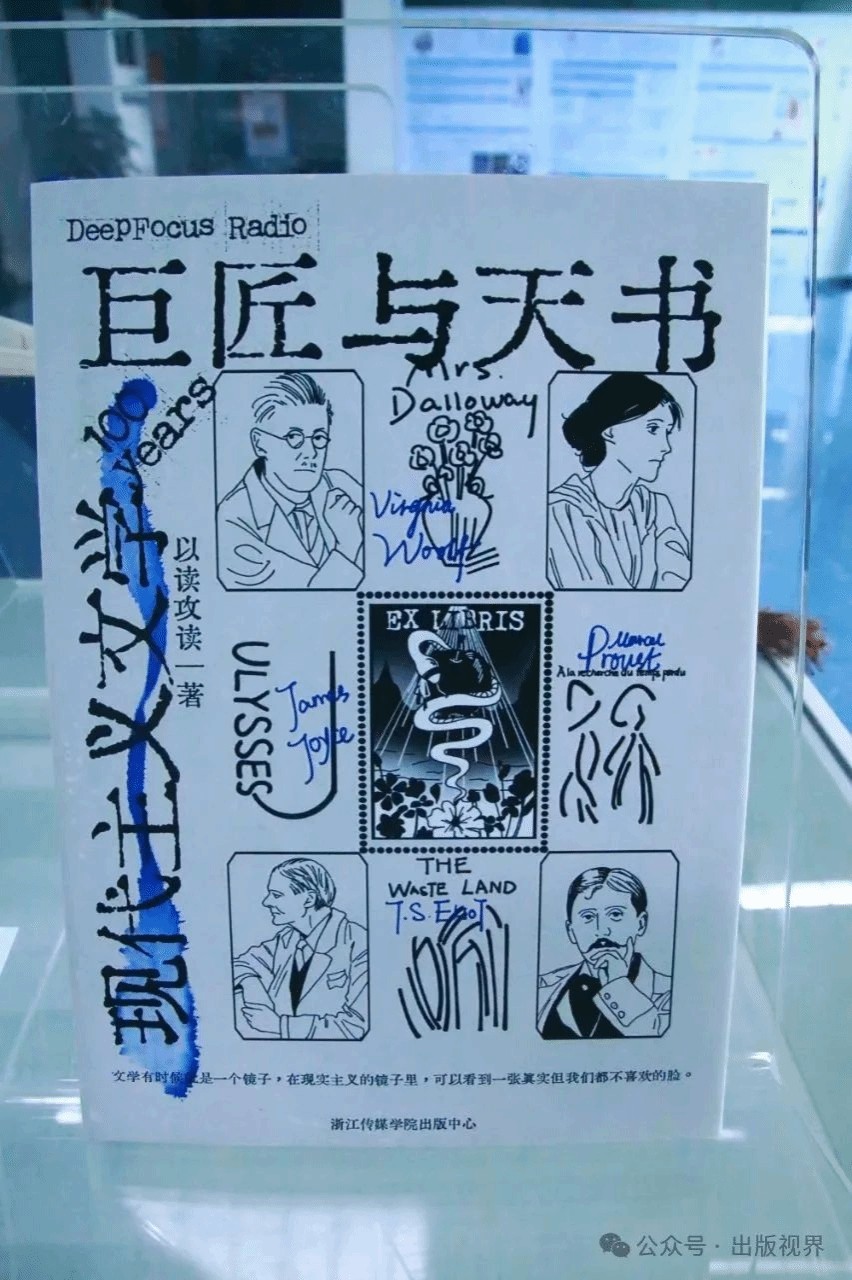 DeepFocus Radio
巨匠与天书
100 years
现代主义文学
以读攻读 一 著
Mrs.
Dalloway
Virginia
Woolf
ULYSSES
James
Joyce
EX LIBRIS
Marcel
Proust
À la recherche du temps perdu
THE
WASTE LAND
T.S.Eliot
文学有时候就是一个镜子，在现实主义的镜子里，可以看到一张真实但我们都不喜欢的脸。
浙江传媒学院出版中心
公众号 · 出版视界